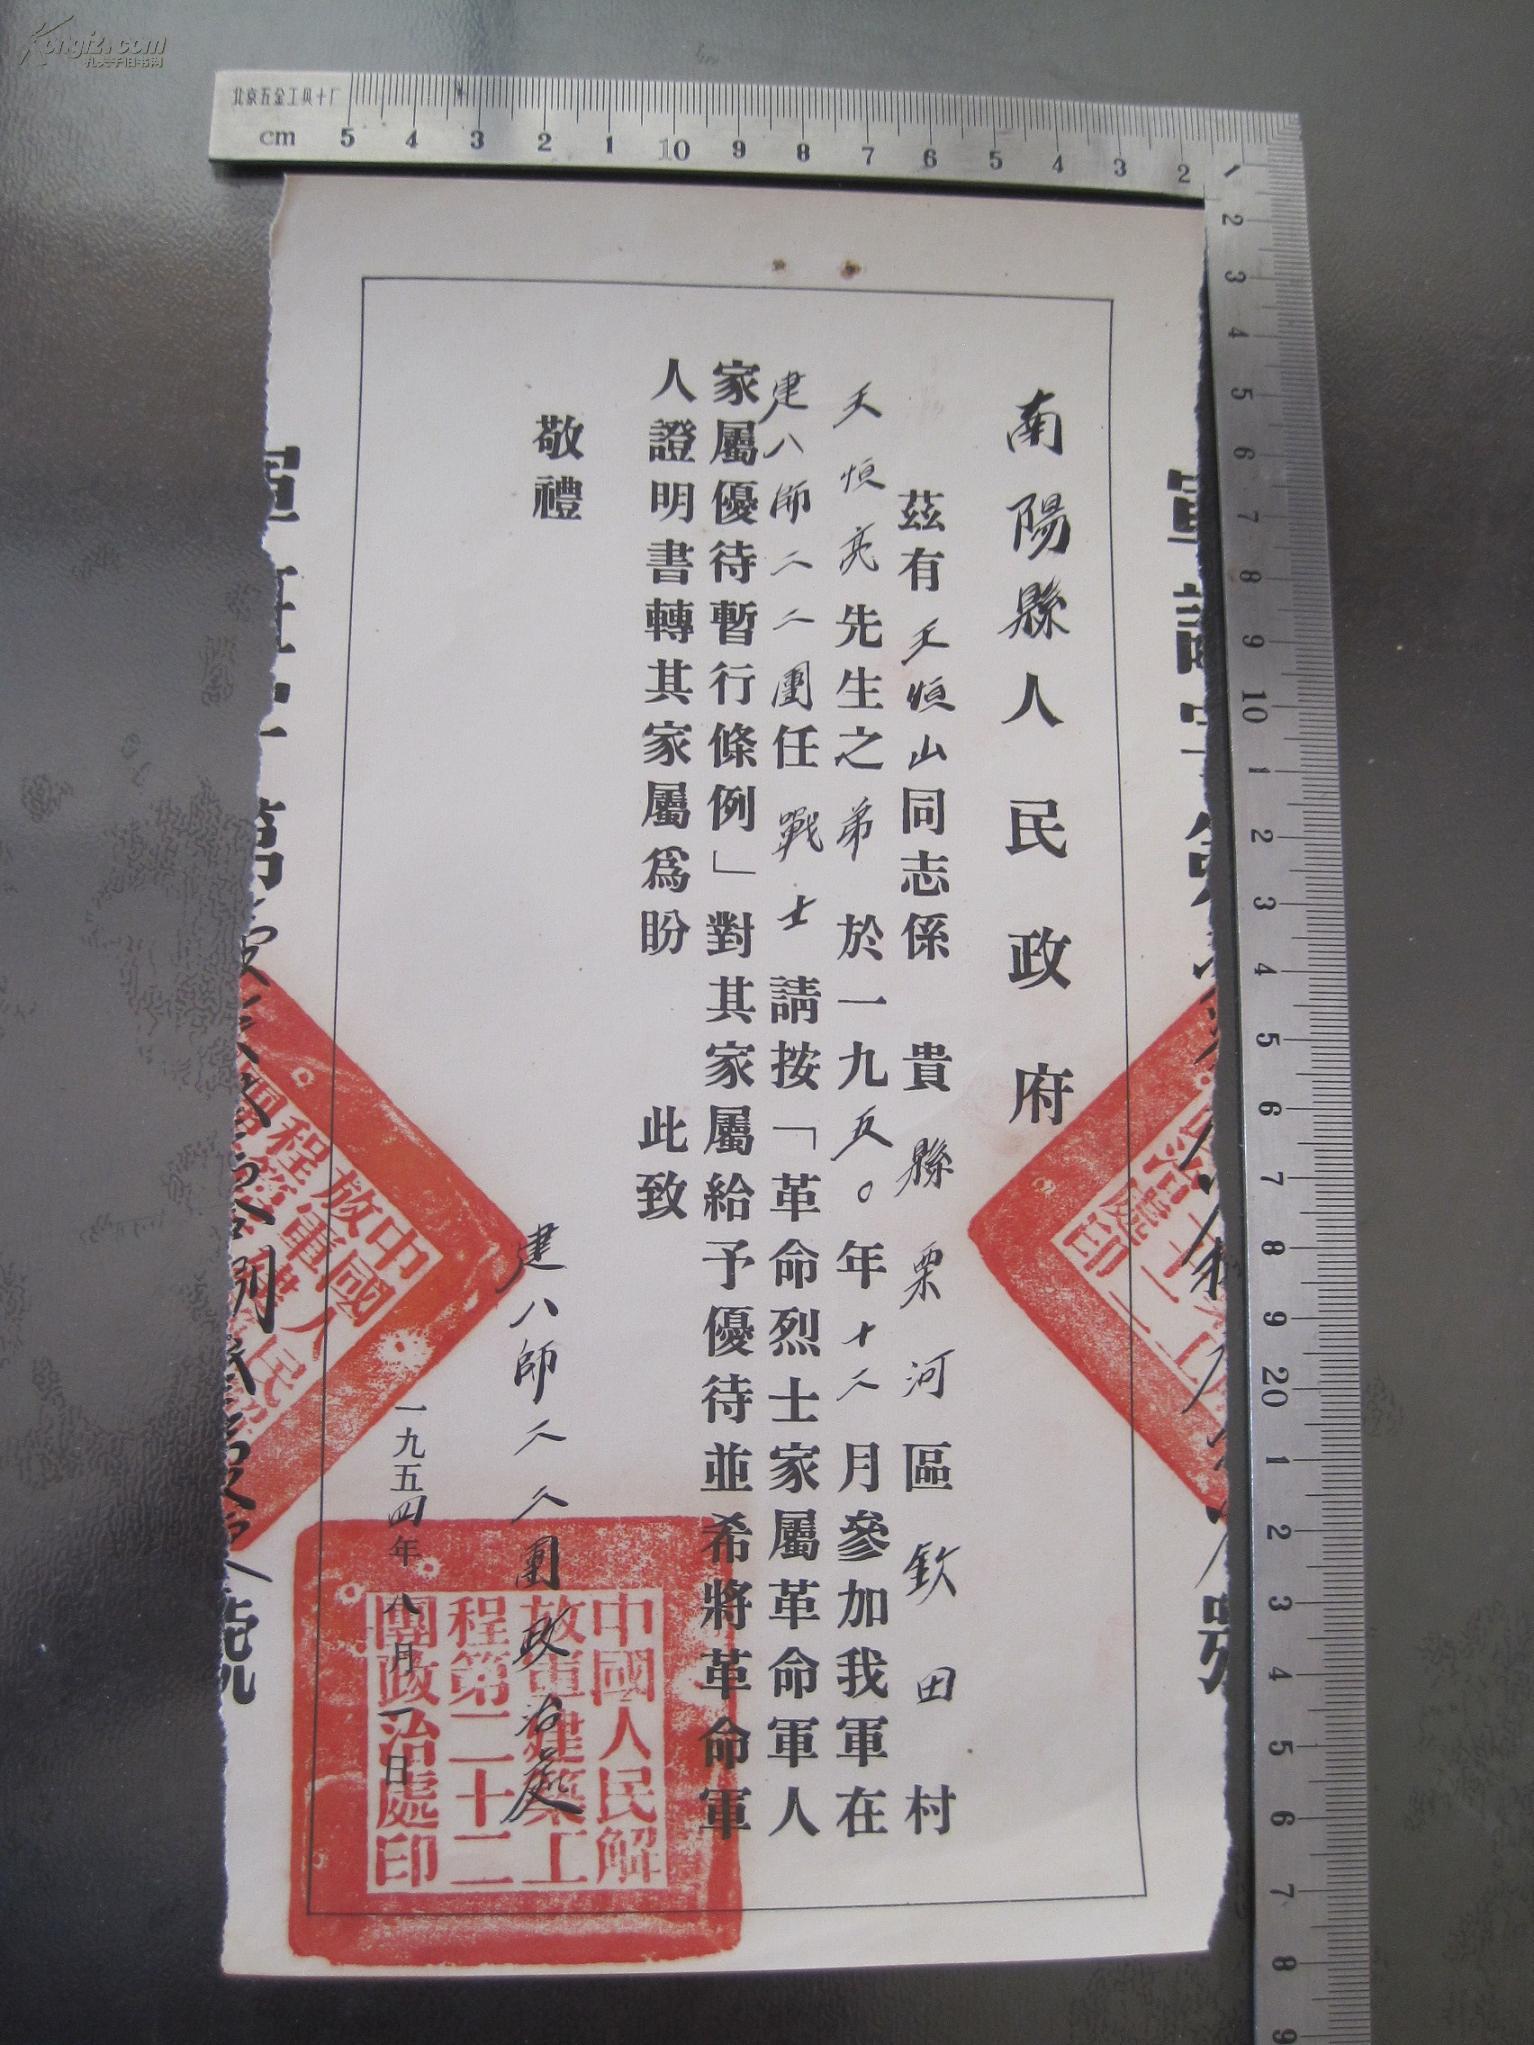 Kongfz.com
孔夫子旧书网
北京五金工具十厂
cm 5 4 3 2 1 10 9 8 7 6 5 4 3 2 1
2 3 4 5 6 7 8 9 10 1 2 3 4 5 6 7 8 9 20 1 2 3 4 5 6 7 8 9
南陽縣人民政府
茲有王恒山同志係 貴縣栗河區欽田村
王恒亮先生之弟於一九五〇年十二月參加我軍在
建八師二二團任戰士 請按「革命烈士家屬革命軍人
家屬優待暫行條例」對其家屬給予優待並希將革命軍
人證明書轉其家屬爲盼 此致
敬禮
建八師二二團政治處
一九五四年八月一日
中國人民解
放軍建築工
程第二十二
團政治處印
第
號